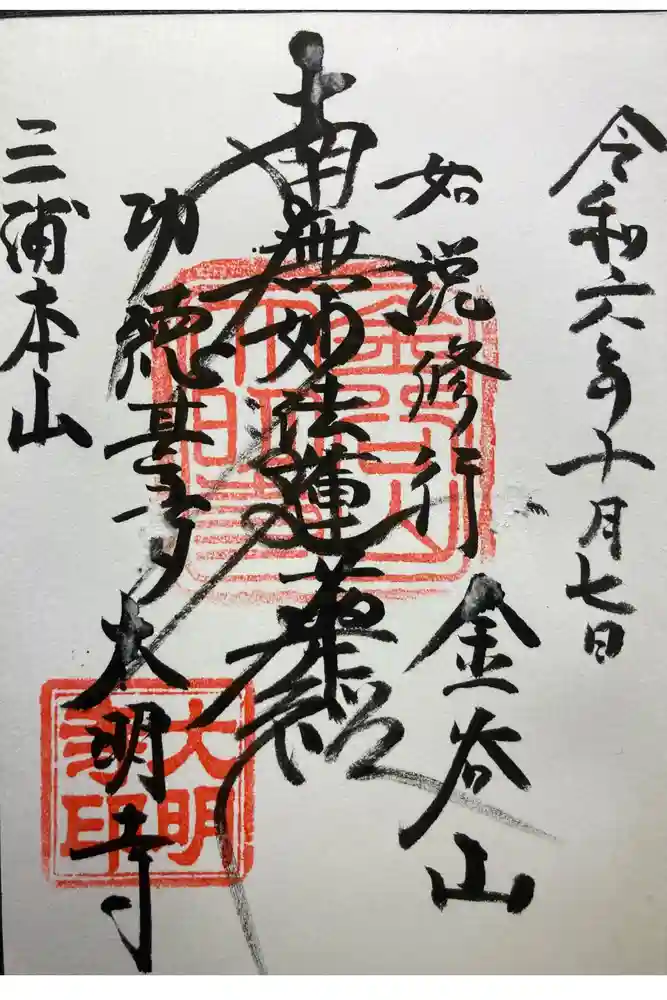 令和六年十月七日
如説修行
金谷山
南無妙法蓮華経
功徳甚多
大明寺
三浦本山
金谷山
大明寺印